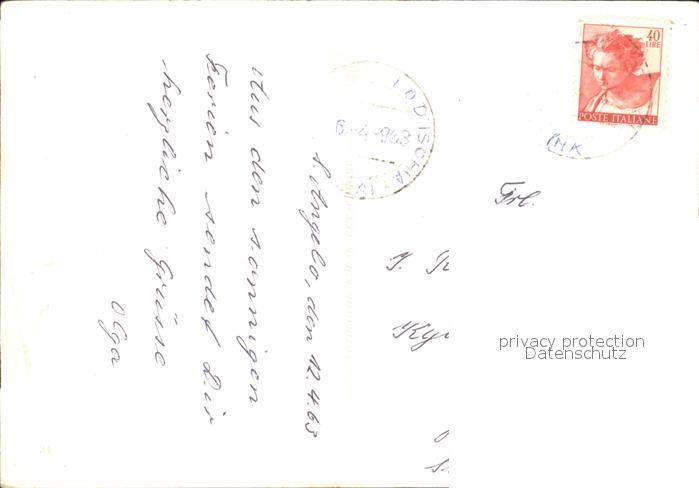 S. Angelo, den 12.4.63
Aus den sonnigen
Ferien sendet Dir
herzliche Grüsse
Olga
40
LIRE
POSTE ITALIANE
ISCHIA
6-4-963
Frl.
privacy protection
Datenschutz